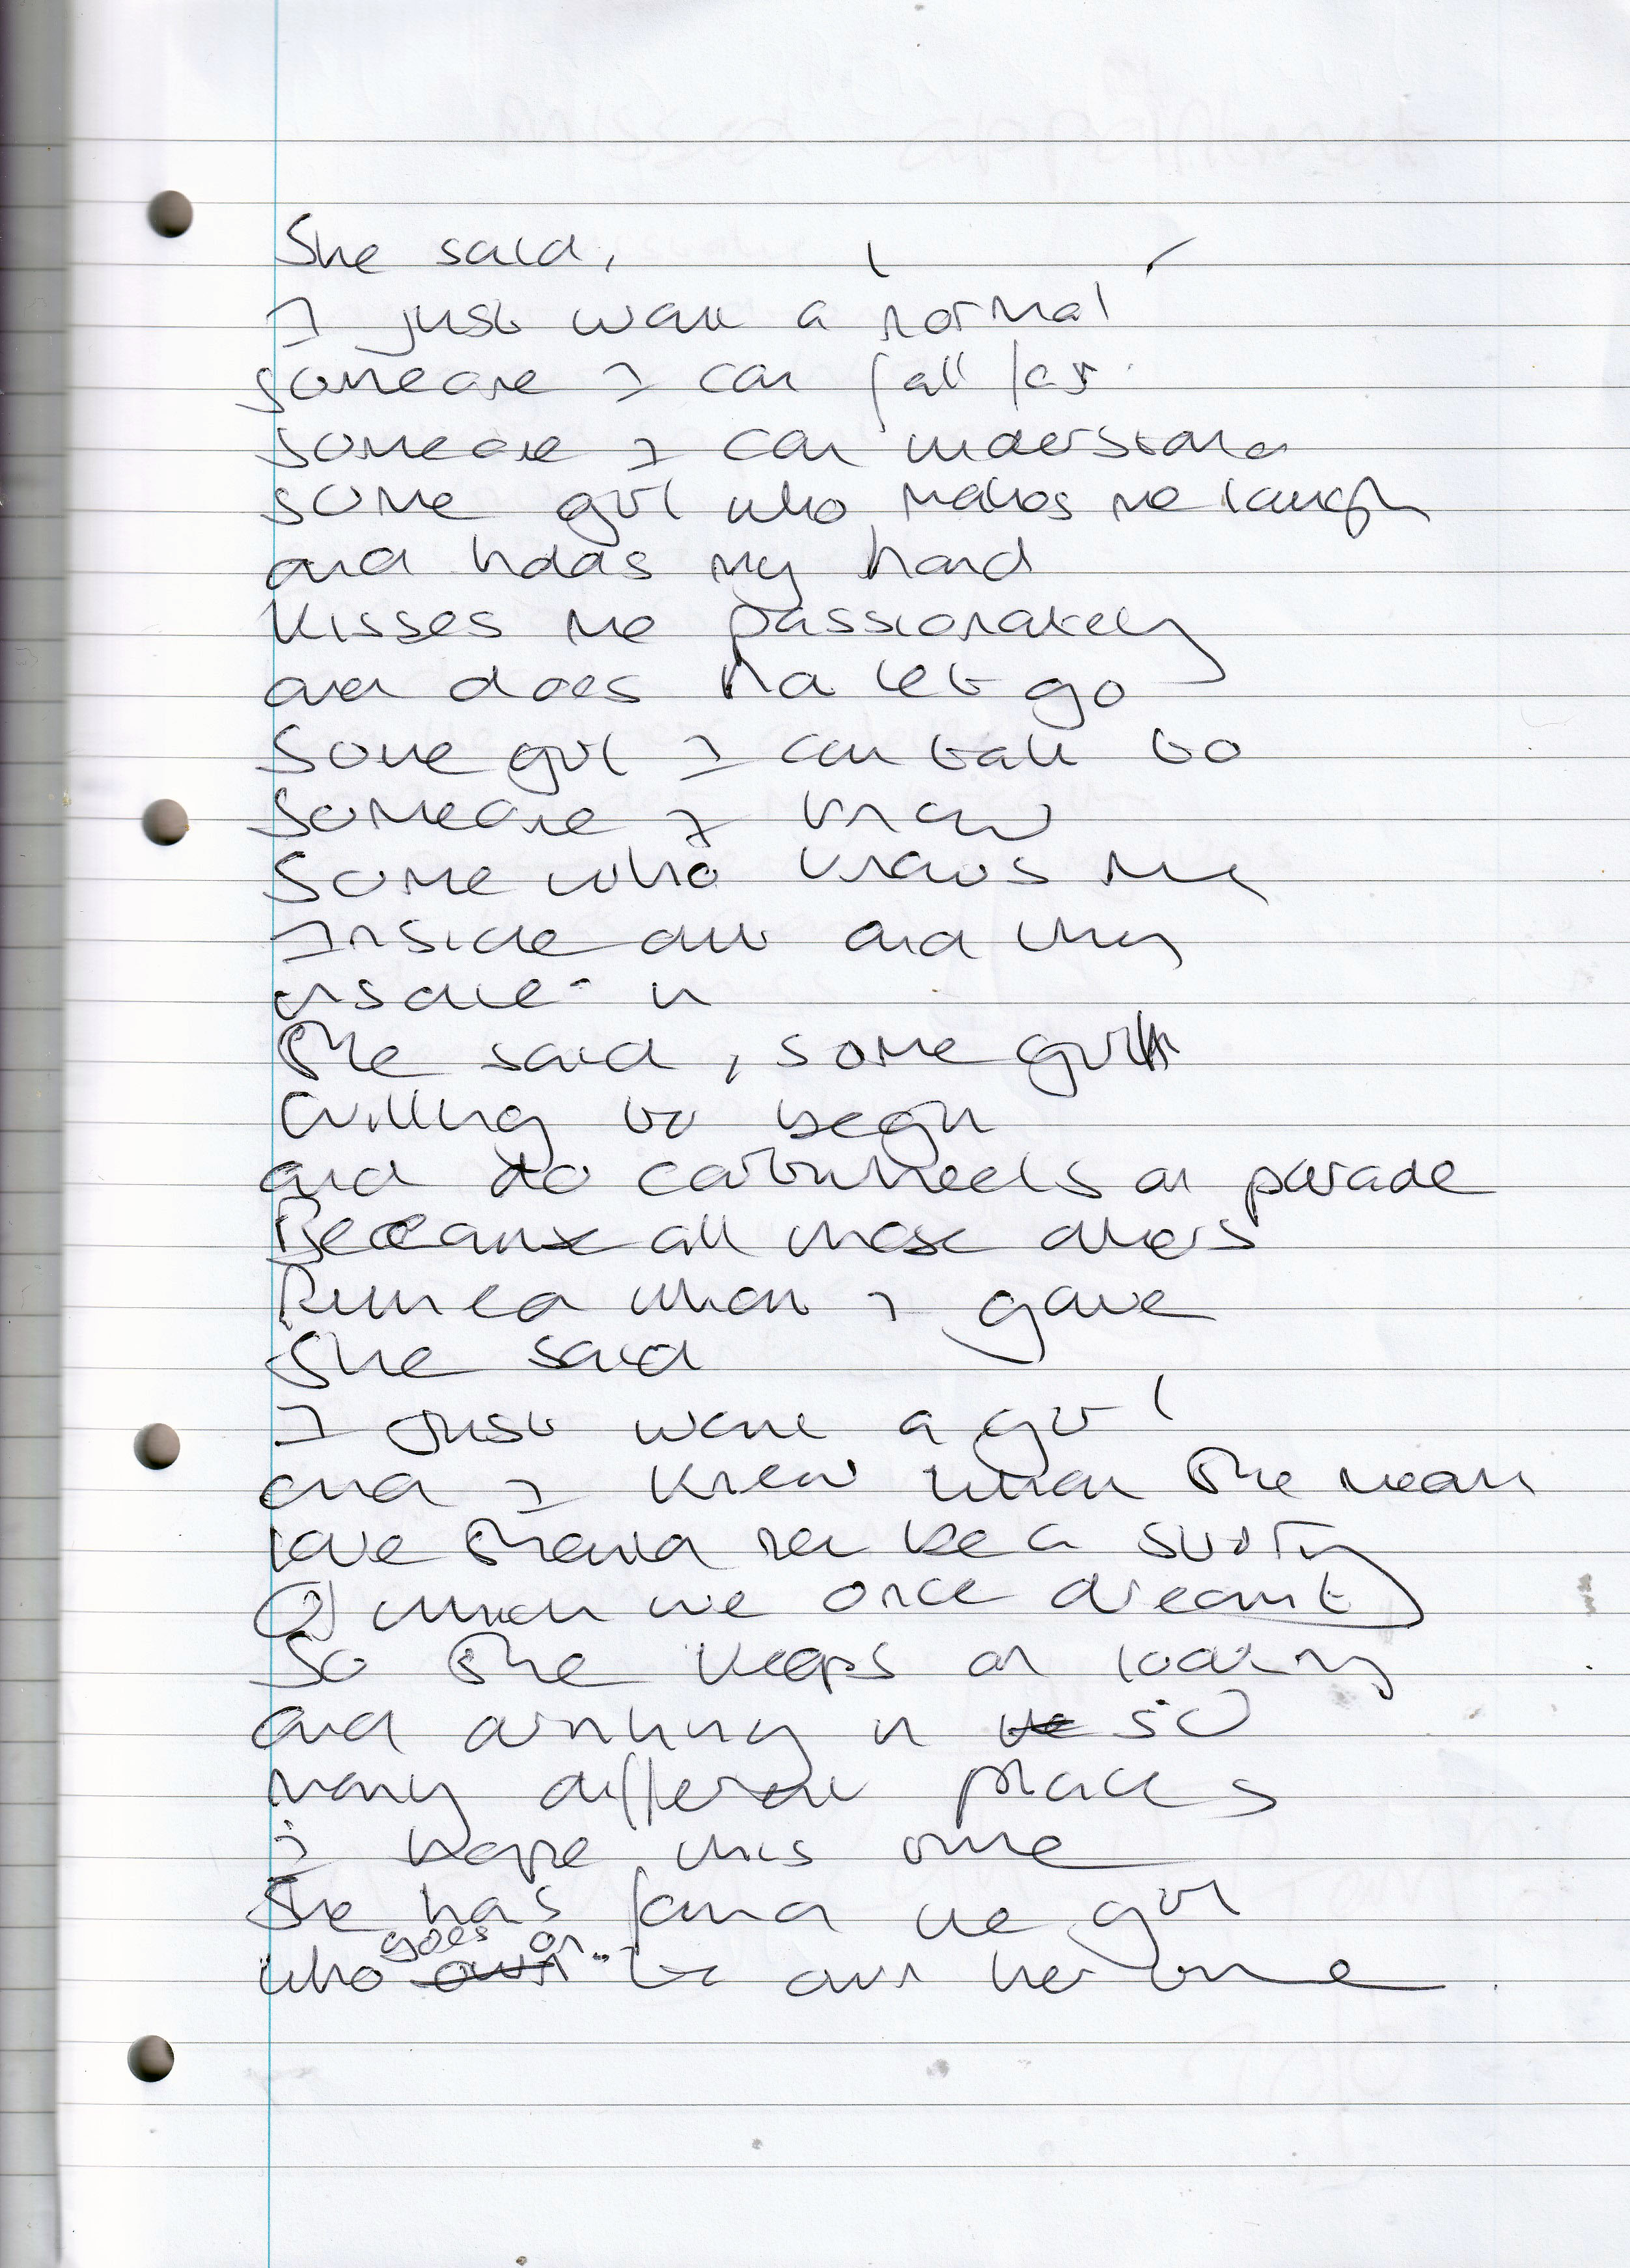 She said,
I just want a normal
someone I can fall for
someone I can understand
some girl who makes me laugh
and holds my hand
kisses me passionately
and does not let go
Some girl I can talk to
someone I know
Some who knows me
Inside out and then
inside in
She said, some girl
willing to begin
and do cartwheels on parade
Because all those others
Ruined what I gave
She said
I just want a girl
and I knew what she meant
love should not be a
of which we once dreamt
So she keeps on looking
and drinking in so
many different places
I hope this time
She has found the girl
who goes on to own her time